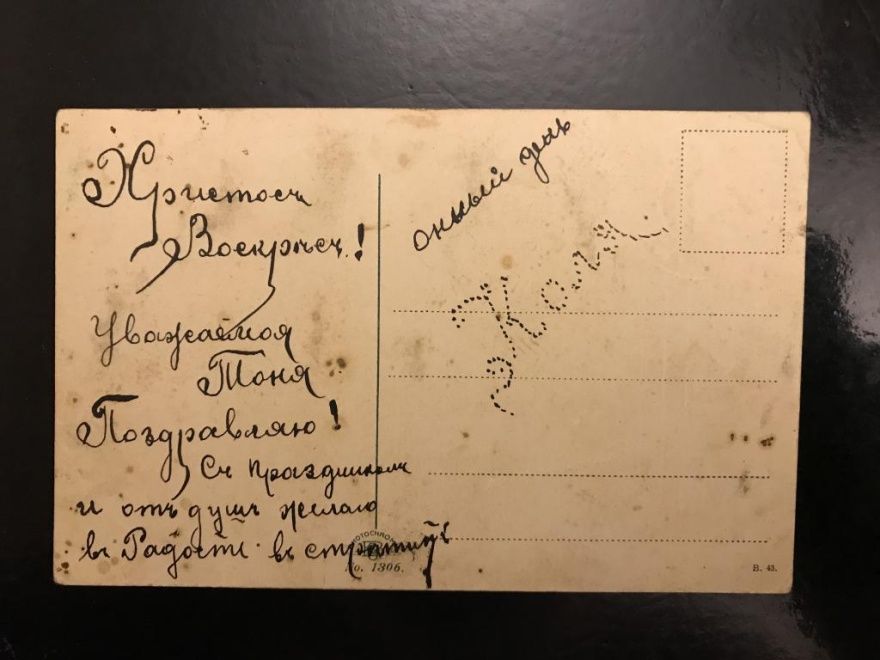 Христосъ
Воскресъ!
Уважаемоя
Тоня
Поздравляю!
Съ праздникомъ
и отъ душъ желаю
въ Радости въ
онный день
Коля
No. 1306.
B. 43.